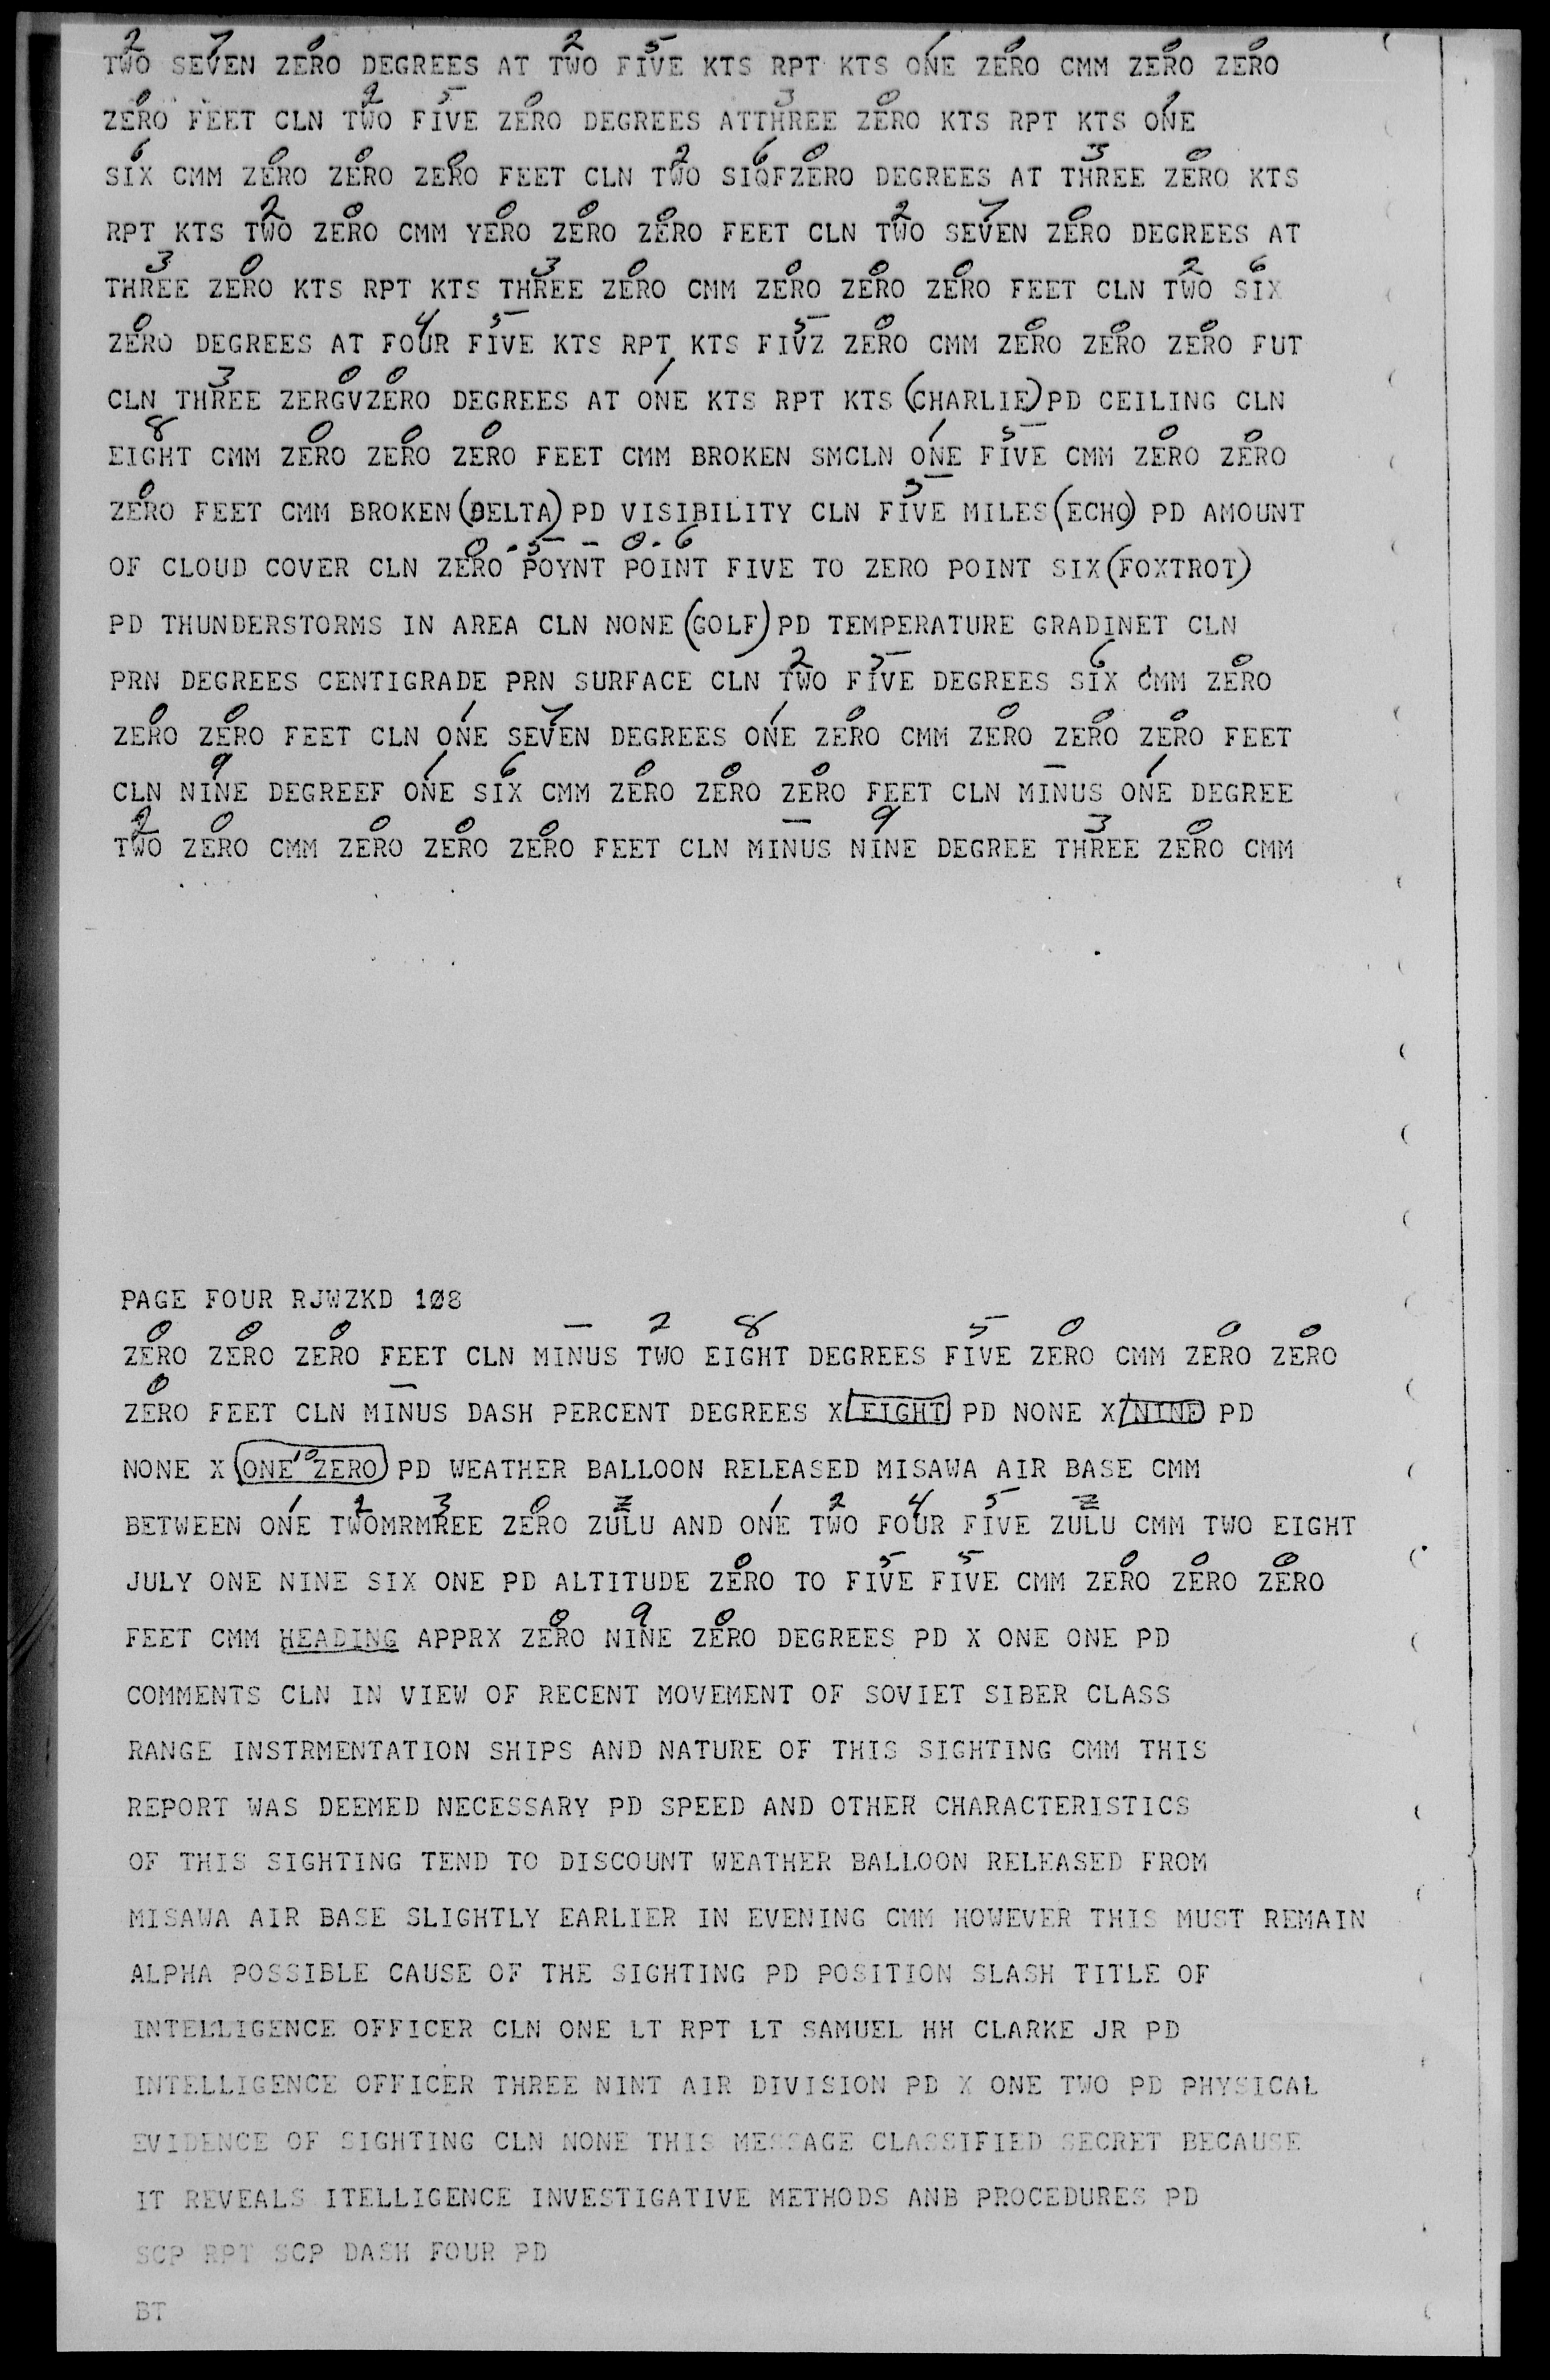 2 7 0 2 5 1 0 0 0
TWO SEVEN ZERO DEGREES AT TWO FIVE KTS RPT KTS ONE ZERO CMM ZERO ZERO
0 2 5 0 3 0 1
ZERO FEET CLN TWO FIVE ZERO DEGREES ATTHREE ZERO KTS RPT KTS ONE
6 0 0 0 2 6 0 3 0
SIX CMM ZERO ZERO ZERO FEET CLN TWO SIQFZERO DEGREES AT THREE ZERO KTS
2 0 0 0 0 2 7 0
RPT KTS TWO ZERO CMM YERO ZERO ZERO FEET CLN TWO SEVEN ZERO DEGREES AT
3 0 3 0 0 0 0 2 6
THREE ZERO KTS RPT KTS THREE ZERO CMM ZERO ZERO ZERO FEET CLN TWO SIX
0 4 5 5 0 0 0 0
ZERO DEGREES AT FOUR FIVE KTS RPT KTS FIVZ ZERO CMM ZERO ZERO ZERO FUT
3 0 0 1
CLN THREE ZERGVZERO DEGREES AT ONE KTS RPT KTS (CHARLIE) PD CEILING CLN
8 0 0 0 1 5 0 0
EIGHT CMM ZERO ZERO ZERO FEET CMM BROKEN SMCLN ONE FIVE CMM ZERO ZERO
0 5
ZERO FEET CMM BROKEN (DELTA) PD VISIBILITY CLN FIVE MILES (ECHO) PD AMOUNT
0.5 - 0.6
OF CLOUD COVER CLN ZERO POYNT POINT FIVE TO ZERO POINT SIX (FOXTROT)
PD THUNDERSTORMS IN AREA CLN NONE (GOLF) PD TEMPERATURE GRADINET CLN
2 5 6 0
PRN DEGREES CENTIGRADE PRN SURFACE CLN TWO FIVE DEGREES SIX CMM ZERO
0 0 1 7 1 0 0 0 0
ZERO ZERO FEET CLN ONE SEVEN DEGREES ONE ZERO CMM ZERO ZERO ZERO FEET
9 1 6 0 0 0 - 1
CLN NINE DEGREEF ONE SIX CMM ZERO ZERO ZERO FEET CLN MINUS ONE DEGREE
2 0 0 0 0 - 9 3 0
TWO ZERO CMM ZERO ZERO ZERO FEET CLN MINUS NINE DEGREE THREE ZERO CMM
PAGE FOUR RJWZKD 1Ø8
0 0 0 - 2 8 5 0 0 0
ZERO ZERO ZERO FEET CLN MINUS TWO EIGHT DEGREES FIVE ZERO CMM ZERO ZERO
0 -
ZERO FEET CLN MINUS DASH PERCENT DEGREES X EIGHT PD NONE X NINE PD
10
NONE X ONE ZERO PD WEATHER BALLOON RELEASED MISAWA AIR BASE CMM
1 2 3 0 Z 1 2 4 5 Z
BETWEEN ONE TWOMRMREE ZERO ZULU AND ONE TWO FOUR FIVE ZULU CMM TWO EIGHT
0 5 5 0 0 0
JULY ONE NINE SIX ONE PD ALTITUDE ZERO TO FIVE FIVE CMM ZERO ZERO ZERO
0 9 0
FEET CMM HEADING APPRX ZERO NINE ZERO DEGREES PD X ONE ONE PD
COMMENTS CLN IN VIEW OF RECENT MOVEMENT OF SOVIET SIBER CLASS
RANGE INSTRMENTATION SHIPS AND NATURE OF THIS SIGHTING CMM THIS
REPORT WAS DEEMED NECESSARY PD SPEED AND OTHER CHARACTERISTICS
OF THIS SIGHTING TEND TO DISCOUNT WEATHER BALLOON RELEASED FROM
MISAWA AIR BASE SLIGHTLY EARLIER IN EVENING CMM HOWEVER THIS MUST REMAIN
ALPHA POSSIBLE CAUSE OF THE SIGHTING PD POSITION SLASH TITLE OF
INTELLIGENCE OFFICER CLN ONE LT RPT LT SAMUEL HH CLARKE JR PD
INTELLIGENCE OFFICER THREE NINT AIR DIVISION PD X ONE TWO PD PHYSICAL
EVIDENCE OF SIGHTING CLN NONE THIS MESSAGE CLASSIFIED SECRET BECAUSE
IT REVEALS ITELLIGENCE INVESTIGATIVE METHODS ANB PROCEDURES PD
SCP RPT SCP DASH FOUR PD
BT